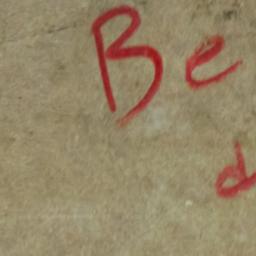 Be
d